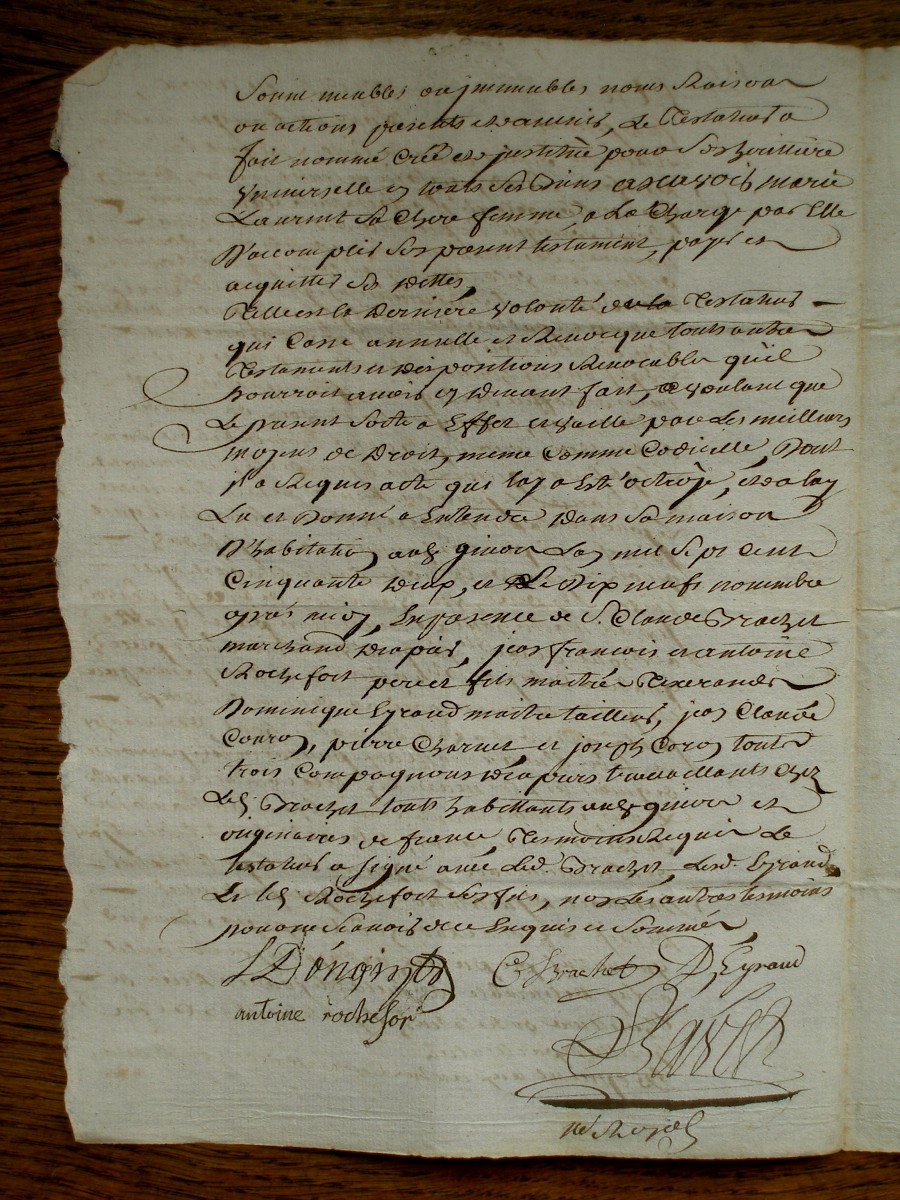 Soint meubles ou jmmeubles noms Raisons
ou actions presents et avenir, Le Testateur a
fait nommé créé et justitué pour Son heritiere
Vniverselle en touts ses Biens ascavoir marie
Laurent Sa Chere femme, a La Charge par Elle
D'accomplir Son present testament, payer et
acquitter Ses dettes,
Telle est la Derniere volonté du Testateur
qui Casse annulle et Revocque touts autres
Testaments et dispositions Revocables qu'il
pourroit avoir cy devant fait, voulant que
Le present Sorte a Effet et vaille par Les meilleurs
moyens de Droit, meme Comme Codicille, Dont
j'a Requis acte que luy a Esté octroyé, et a luy
Lu et Donné a Entendre dans Sa maison
D'habitation Lan mil Sept Cent
Cinquante deux, et Le Dix neufe novembre
aprés midy, En presence de S. Claude Brachet
marchand drapier, jean francois et antoine
Rochefort pere et fils maitres Tixerands
Dominique Eyraud maitre tailleur, jean Claude
pierre Charvet et joseph Caron touts
trois Compagnons drapiers travaillants chez
Led. Brachet touts habittants et
originaires de france, Tesmoins Requis Le
testateur a Signé avec Led. Brachet, Led. Eyraud
Et led. Rochefort fils, non Les autres temoins
pour ne Scavoir de ce Enquis et Sommés
C Brachet D Eyraud
antoine rochefort